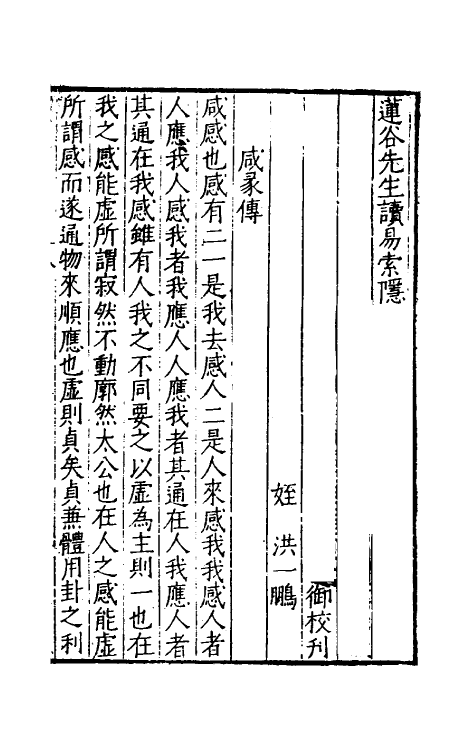 蓮谷先生讀易索隱
御校刋
姪洪一鵬
咸彖傳
咸感也感有二一是我去感人二是人來感我我感人者
人應我人感我者我應人人應我者其通在人我應人者
其通在我感雖有人我之不同要之以虛為主則一也在
我之感能虛所謂寂然不動廓然太公也在人之感能虛
所謂感而遂通物來順應也虛則貞矣貞兼體用卦之利